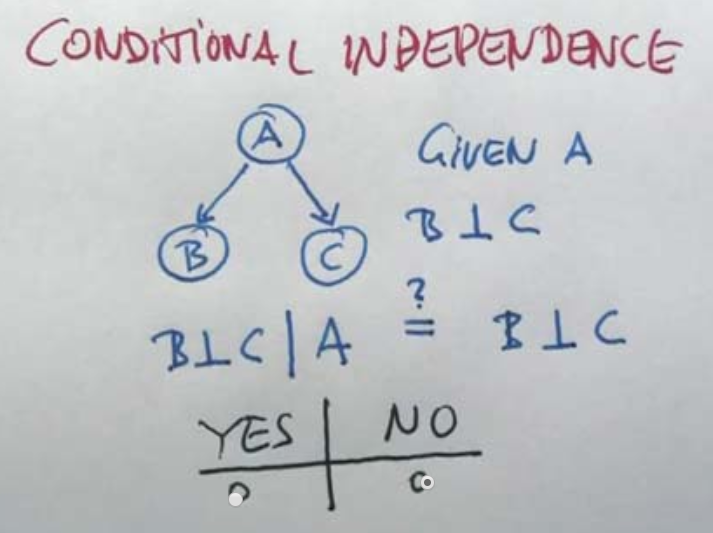 CONDITIONAL INDEPENDENCE
A
GIVEN A
B C
B ⊥ C
?
B ⊥ C | A = B ⊥ C
YES | NO